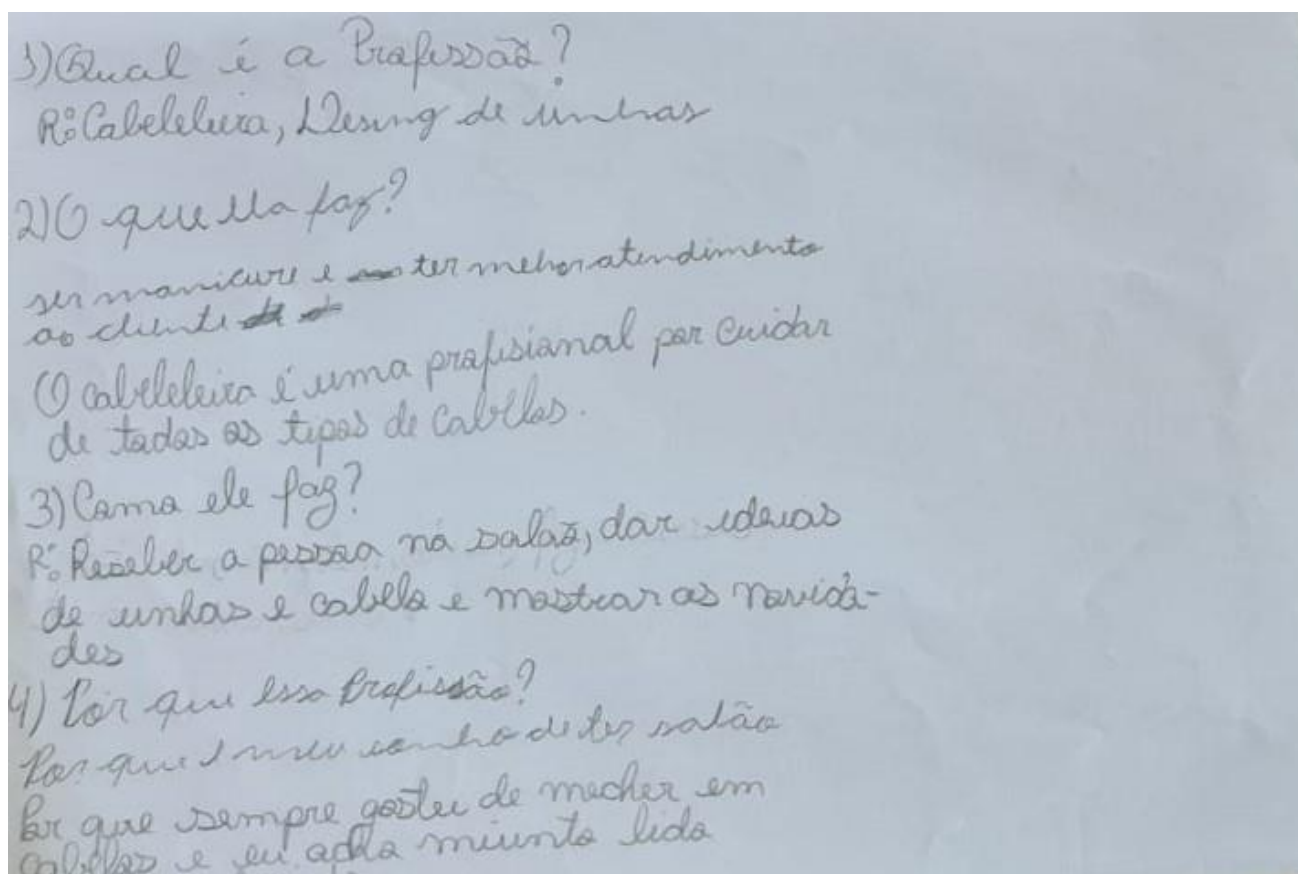 1) Qual é a Profissão?
R: Cabeleleira, Desing de unhas
2) O que ela faz?
ser manicure e ter melhor atendimento
ao cliente
O cabeleleira é uma profisional por cuidar
de todos os tipos de cabelos.
3) Como ele faz?
R: Receber a pessoa no salão, dar ideias
de unhas e cabelo e mostrar as novida-
des
4) Por que essa Profissão?
Por que é meu sonho de ter salão
Por que sempre gostei de mecher em
cabelos e eu acho miunto lido